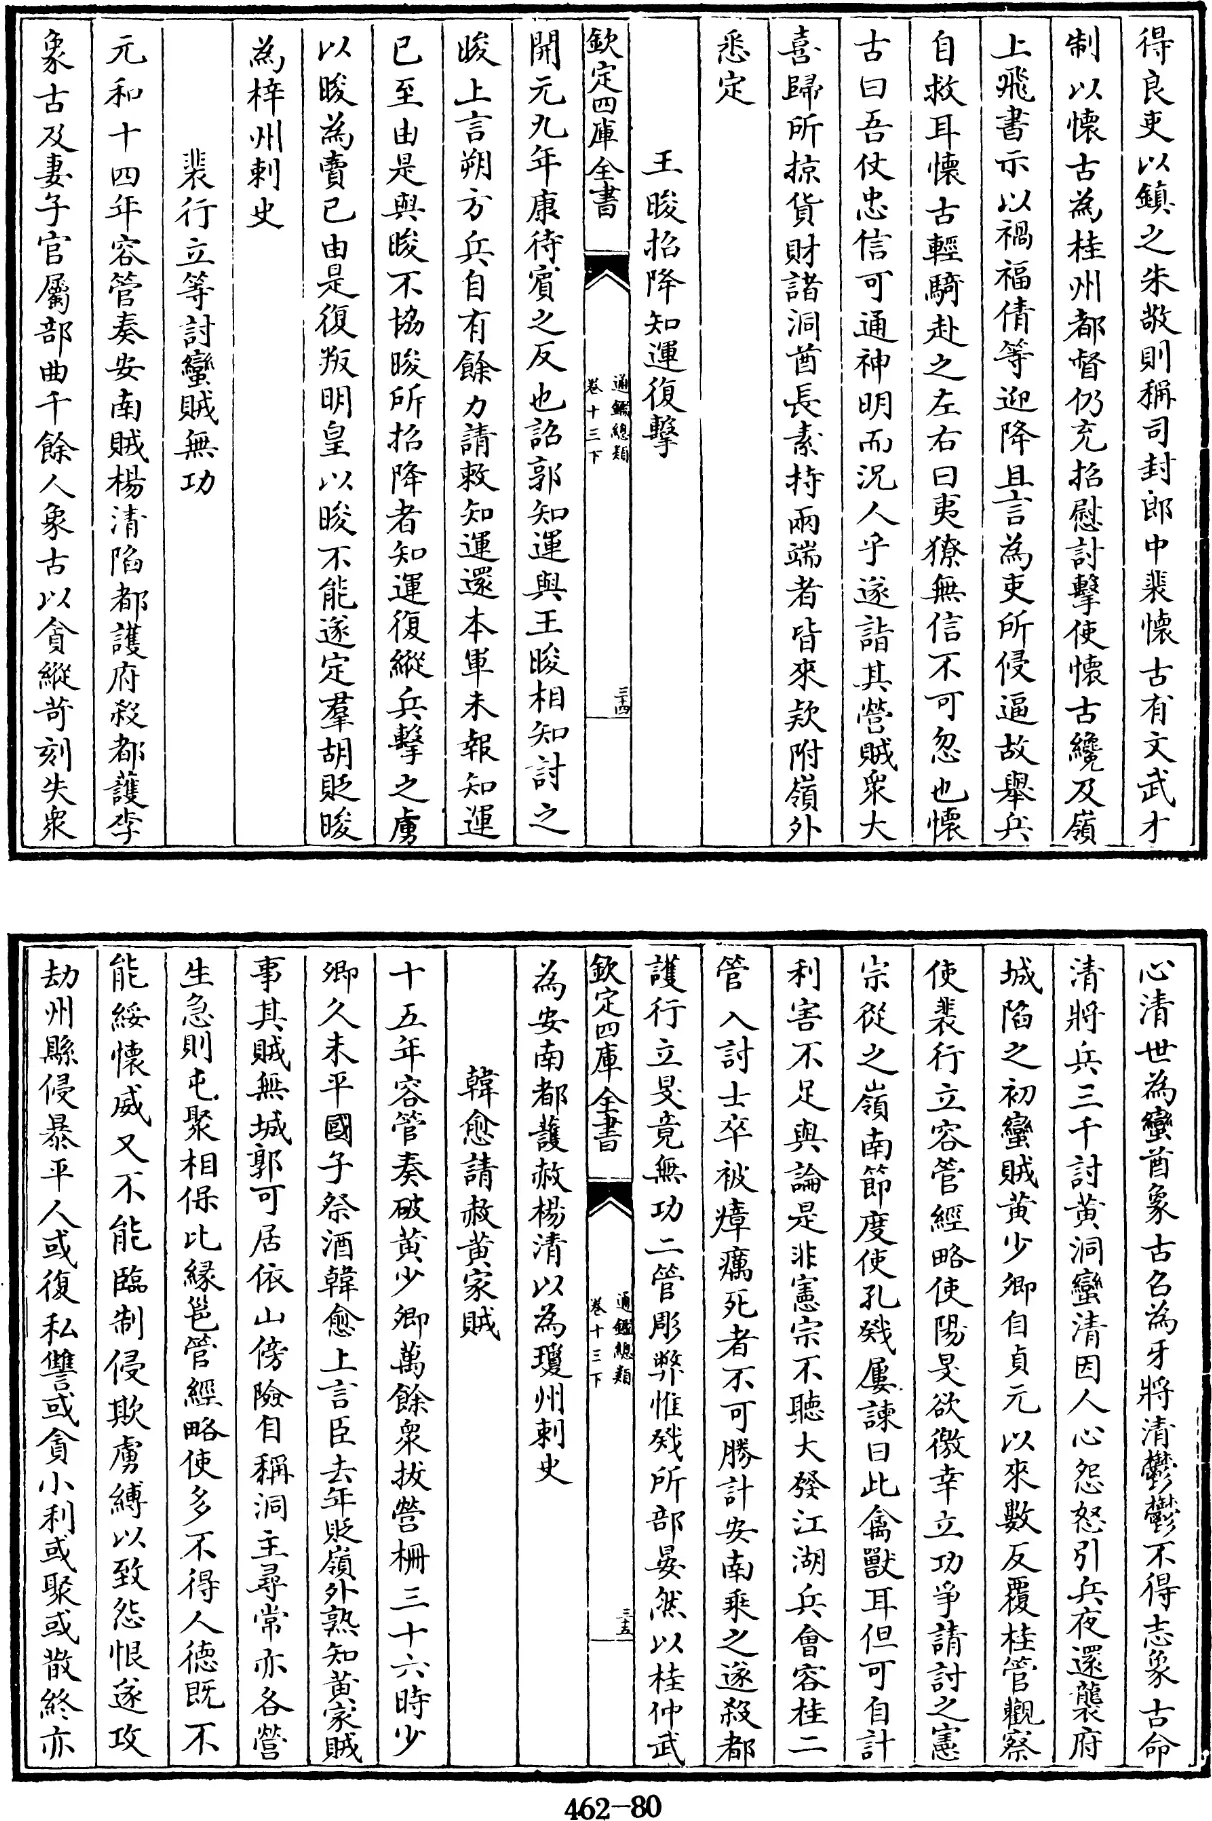 得良吏以鎮之朱敬則稱司封郎中裴懷古有文武才
制以懷古為桂州都督仍充招慰討擊使懷古纔及嶺
上飛書示以禍福倩等迎降且言為吏所侵逼故舉兵
自救耳懷古輕騎赴之左右曰夷獠無信不可忽也懷
古曰吾仗忠信可通神明而況人乎遂詣其營賊衆大
喜歸所掠貨財諸洞酋長素持兩端者皆來欵附嶺外
悉定
王晙招降知運復擊
欽定四庫全書
通鑑總類
卷十三下
三十四
開元九年康待賓之反也詔郭知運與王晙相知討之
晙上言朔方兵自有餘力請敕知運還本軍未報知運
已至由是與晙不協晙所招降者知運復縱兵擊之虜
以晙為賣已由是復叛明皇以晙不能遂定羣胡貶晙
為梓州刺史
裴行立等討蠻賊無功
元和十四年容管奏安南賊楊清陷都護府殺都護李
象古及妻子官屬部曲千餘人象古以貪縱苛刻失衆
心清世為蠻酋象古召為牙將清鬱鬱不得志象古命
清將兵三千討黄洞蠻清因人心怨怒引兵夜還襲府
城陷之初蠻賊黄少卿自貞元以來數反覆桂管觀察
使裴行立容管經略使陽旻欲徼幸立功爭請討之憲
宗從之嶺南節度使孔戣屢諫曰此禽獸耳但可自計
利害不足與論是非憲宗不聽大發江湖兵會容桂二
管入討士卒被瘴癘死者不可勝計安南乘之遂殺都
護行立旻竟無功二管彫弊惟戣所部晏然以桂仲武
欽定四庫全書
通鑑總類
卷十三下
三十五
為安南都護赦楊清以為瓊州刺史
韓愈請赦黄家賊
十五年容管奏破黄少卿萬餘衆拔營柵三十六時少
卿久未平國子祭酒韓愈上言臣去年貶嶺外熟知黄家賊
事其賊無城郭可居依山傍險自稱洞主尋常亦各營
生急則屯聚相保比緣邕管經略使多不得人德既不
能綏懷威又不能臨制侵欺虜縛以致怨恨遂攻
劫州縣侵暴平人或復私讐或貪小利或聚或散終亦
462-80